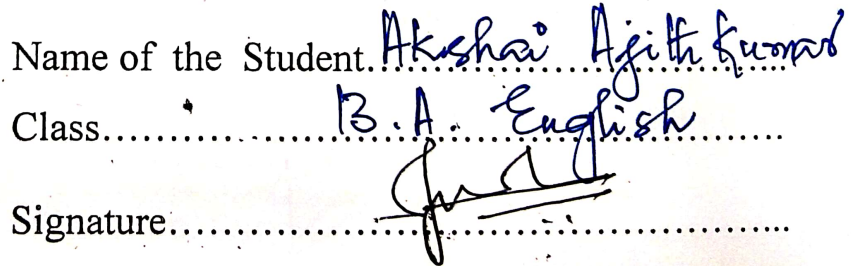 Name of the Student. Akshai Ajith Kumar
Class.................... B.A. English
Signature........................................................